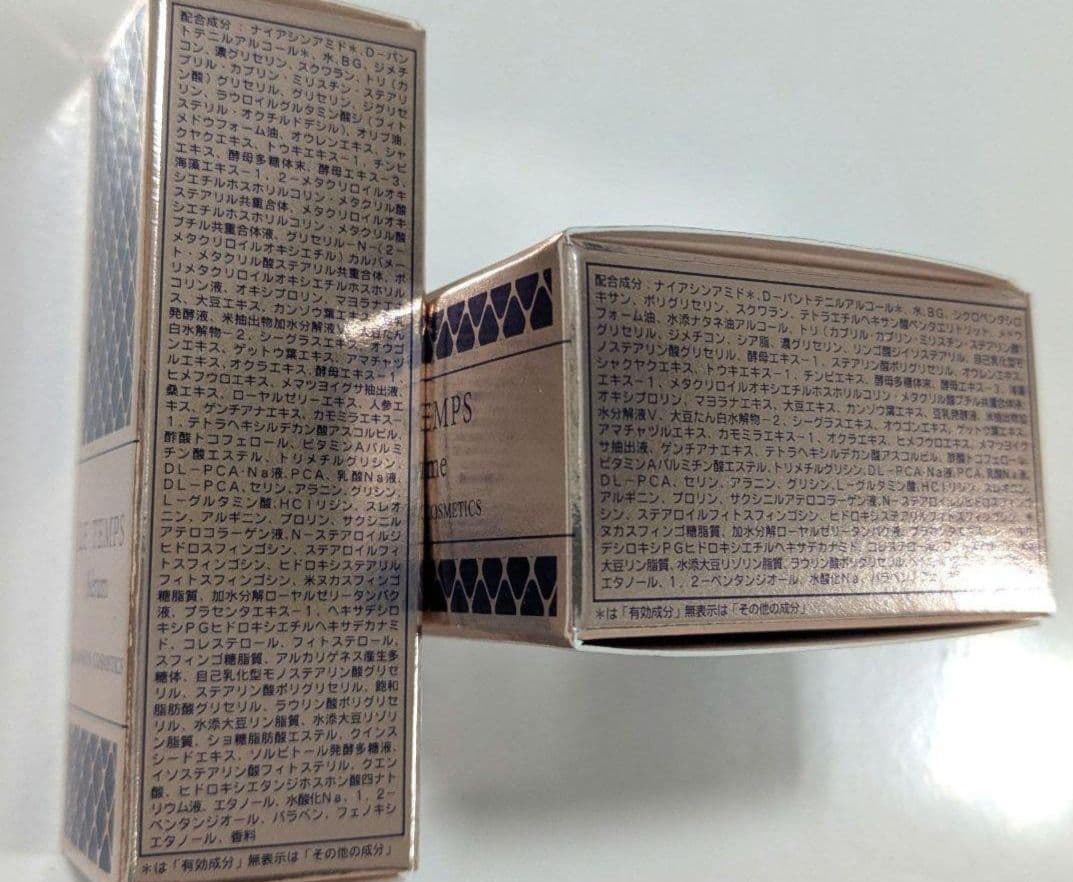 配合成分：ナイアシンアミド＊、D－パン
トテニルアルコール＊、水、BG、ジメチ
コン、濃グリセリン、スクワラン、トリ（カ
プリル・カプリン・ミリスチン・ステアリ
ン酸）グリセリル、グリセリン、ジグリセ
リン、ラウロイルグルタミン酸ジ（フィト
ステリル・オクチルドデシル）、オリブ油、
メドウフォーム油、オウレンエキス、シャ
クヤクエキス、トウキエキス－1、チンピ
エキス、酵母多糖体末、酵母エキス－3、
海藻エキス－1、2－メタクリロイルオキ
シエチルホスホリルコリン・メタクリル酸
ステアリル共重合体、メタクリロイルオキ
シエチルホスホリルコリン・メタクリル酸
ブチル共重合体液、グリセリル－N－（2－
メタクリロイルオキシエチル）カルバメー
ト・メタクリル酸ステアリル共重合体、ポ
リメタクリロイルオキシエチルホスホリル
コリン液、オキシプロリン、マヨラナエキ
ス、大豆エキス、カンゾウ葉エキス、
発酵液、米抽出物加水分解液
白水解物－2、シーグラスエキス、オウゴ
ンエキス、ゲットウ葉エキス、アマチャヅ
ルエキス、オクラエキス、酵母エキス－1、
ヒメフウロエキス、メマツヨイグサ抽出液、
桑エキス、ローヤルゼリーエキス、人参エ
キス、ゲンチアナエキス、カモミラエキス－
1、テトラヘキシルデカン酸アスコルビル、
酢酸トコフェロール、ビタミンAパルミ
チン酸エステル、トリメチルグリシン、
DL－PCA・Na液、PCA、乳酸Na液、
DL－PCA、セリン、アラニン、グリシン、
L－グルタミン酸、HCIリジン、スレオ
ニン、アルギニン、プロリン、サクシニル
アテロコラーゲン液、N－ステアロイルジ
ヒドロスフィンゴシン、ステアロイルフィ
トスフィンゴシン、ヒドロキシステアリル
フィトスフィンゴシン、米ヌカスフィンゴ
糖脂質、加水分解ローヤルゼリータンパク
液、プラセンタエキス－1、ヘキサデシロ
キシPGヒドロキシエチルヘキサデカナミ
ド、コレステロール、フィトステロール、
スフィンゴ糖脂質、アルカリゲネス産生多
糖体、自己乳化型モノステアリン酸グリセ
リル、ステアリン酸ポリグリセリル、飽和
脂肪酸グリセリル、ラウリン酸ポリグリセ
リル、水添大豆リン脂質、水添大豆リゾリ
ン脂質、ショ糖脂肪酸エステル、クインス
シードエキス、ソルビトール発酵多糖液、
イソステアリン酸フィトステリル、クエン
酸、ヒドロキシエタンジホスホン酸四ナト
リウム液、エタノール、水酸化Na、1，2－
ペンタンジオール、パラベン、フェノキシ
エタノール、香料
＊は「有効成分」無表示は「その他の成分」
DE TEMPS
Serum
COSMETICS
EMPS
me
COSMETICS
配合成分：ナイアシンアミド＊、D－パントテニルアルコール＊、水、BG、シクロペンタシロ
キサン、ポリグリセリン、スクワラン、テトラエチルヘキサン酸ペンタエリトリット、メドウ
フォーム油、水添ナタネ油アルコール、トリ（カプリル・カプリン・ミリスチン・ステアリン酸）
グリセリル、ジメチコン、シア脂、濃グリセリン、リンゴ酸ジイソステアリル、自己乳化型モ
ノステアリン酸グリセリル、酵母エキス－1、ステアリン酸ポリグリセリル、オウレンエキス、
シャクヤクエキス、トウキエキス－1、チンピエキス、酵母多糖体末、酵母エキス－3、海藻
エキス－1、メタクリロイルオキシエチルホスホリルコリン・メタクリル酸ブチル共重合体液、
オキシプロリン、マヨラナエキス、大豆エキス、カンゾウ葉エキス、豆乳発酵液、米抽出物加
水分解液V、大豆たん白水解物－2、シーグラスエキス、オウゴンエキス、ゲットウ葉エキス、
アマチャヅルエキス、カモミラエキス－1、オクラエキス、ヒメフウロエキス、メマツヨイグ
サ抽出液、ゲンチアナエキス、テトラヘキシルデカン酸アスコルビル、酢酸トコフェロール、
ビタミンAパルミチン酸エステル、トリメチルグリシン、DL－PCA・Na液、PCA、乳酸Na液、
DL－PCA、セリン、アラニン、グリシン、L－グルタミン酸、HCIリジン、スレオニン、
アルギニン、プロリン、サクシニルアテロコラーゲン液、N－ステアロイルジヒドロスフィンゴ
シン、ステアロイルフィトスフィンゴシン、ヒドロキシステアリルフィトスフィンゴシン、
ヌカスフィンゴ糖脂質、加水分解ローヤルゼリータンパク液、プラセンタエキス
デシロキシPGヒドロキシエチルヘキサデカナミド、コレステロール、
大豆リン脂質、水添大豆リゾリン脂質、ラウリン酸ポリグリセリル、
エタノール、1，2－ペンタンジオール、水酸化Na、パラベン、フェ
＊は「有効成分」無表示は「その他の成分」